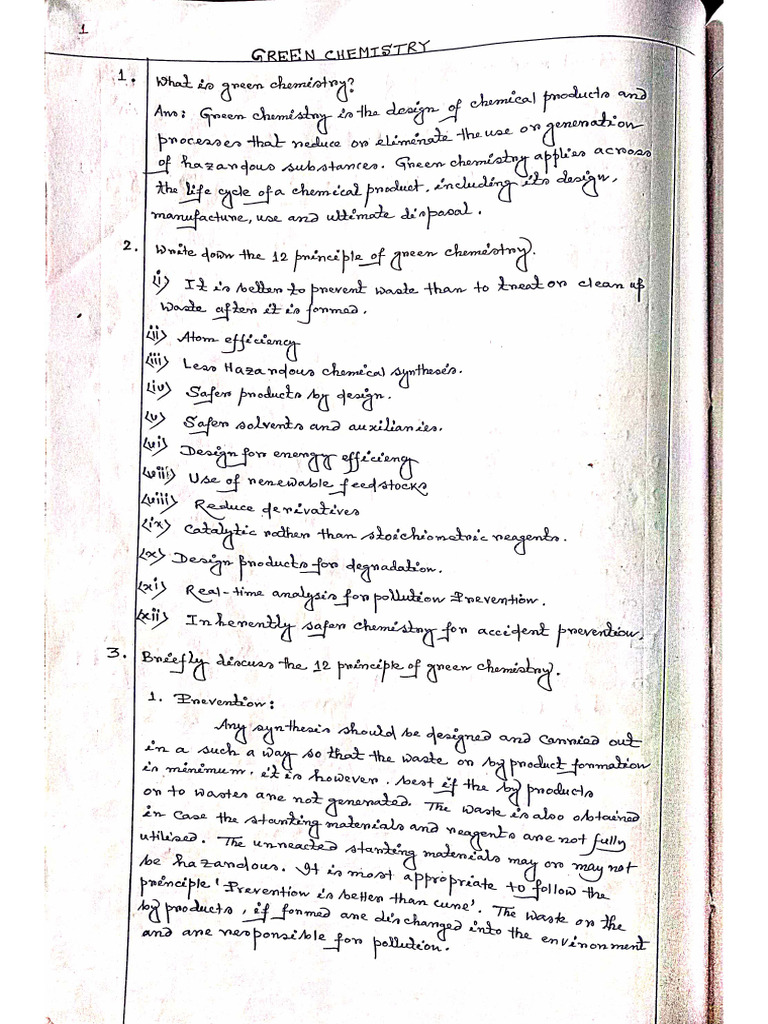 1
GREEN CHEMISTRY
1. What is green chemistry?
Ans: Green chemistry is the design of chemical products and
processes that reduce or eliminate the use or generation
of hazardous substances. Green chemistry applies across
the life cycle of a chemical product, including its design,
manufacture, use and ultimate disposal.
2. Write down the 12 principle of green chemistry.
(i) It is better to prevent waste than to treat or clean up
waste after it is formed.
(ii) Atom efficiency
(iii) Less Hazardous chemical synthesis.
(iv) Safer products by design.
(v) Safer solvents and auxiliaries.
(vi) Design for energy efficiency
(vii) Use of renewable feedstocks
(viii) Reduce derivatives
(ix) Catalytic rather than stoichiometric reagents.
(x) Design products for degradation.
(xi) Real-time analysis for pollution Prevention.
(xii) Inherently safer chemistry for accident prevention.
3. Briefly discuss the 12 principle of green chemistry.
1. Prevention:
Any synthesis should be designed and carried out
in a such a way so that the waste or by product formation
is minimum. it is however. best if the by products
or to wastes are not generated. The waste is also obtained
in case the starting materials and reagents are not fully
utilised. The unreacted starting materials may or may not
be hazardous. It is most appropriate to follow the
principle 'Prevention is better than cure'. The waste or the
by products, if formed are discharged into the environment
and are responsible for pollution.